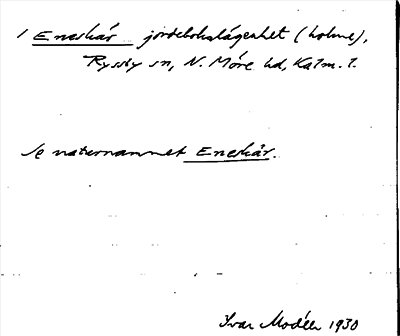 1 Eneskär jordebokslägenhet (holme),
Ryssby sn, N. Möre hd, Kalm. l.
Se naturnamnet Eneskär.
Ivar Modéer 1930